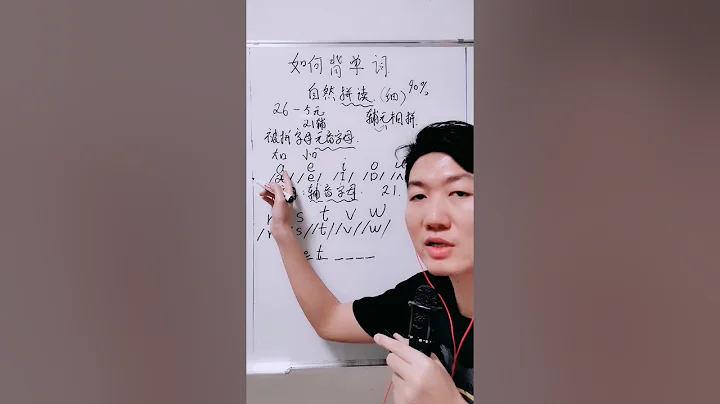 如何背单词
自然拼读(细)90%
26-5元 辅元相拼
21辅
被拼字母元音字母
大口 小口
a e i o u
/e/ /ɪ/ /ɒ/ /ʌ
:辅音字母. 21.
s t v w
/s/ /t/ /v/ /w/
e t _ _ _ _